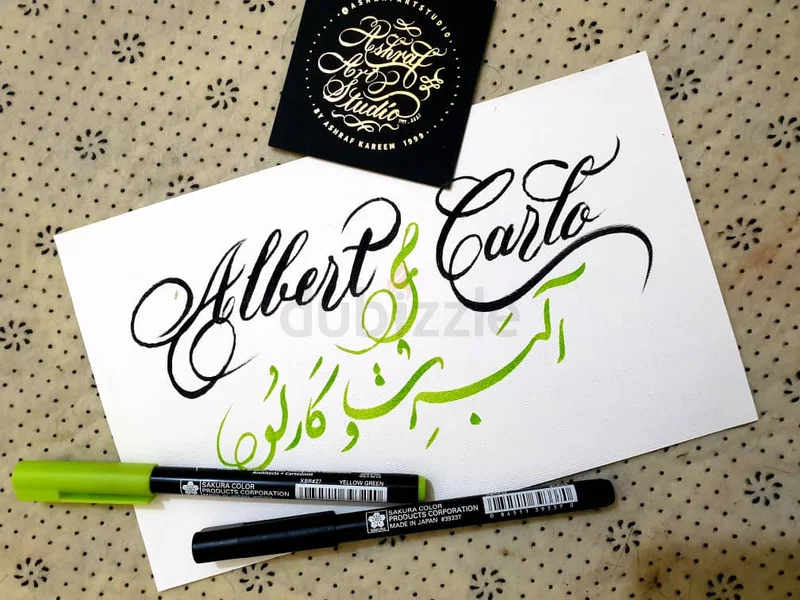 @ASHRAFARTSTUDIO
Ashraf
Art
Studio
BY ASHRAF KAREEM 1999
Albert & Carlo
آلبِرت و کَارلُو
dubizzle
SAKURA COLOR
PRODUCTS CORPORATION
XBR#27 YELLOW GREEN
SAKURA COLOR
PRODUCTS CORPORATION
MADE IN JAPAN #39337
0 84511 39337 0